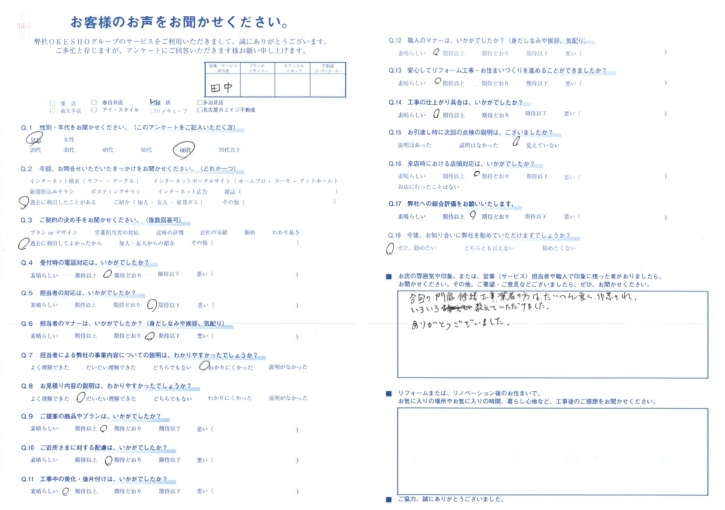 お客様のお声をお聞かせください。
弊社OKESHOグループのサービスをご利用いただきまして、誠にありがとうございます。
ご多忙と存じますが、アンケートにご回答いただきます様お願い申し上げます。
田中
東店 春日井店 店 多治見店
長久手店 アイ・スタイル リノキューブ 名古屋カエイジ不動産
Q.1 性別・年代をお聞かせください。（このアンケートをご記入いただく方）
男性 女性
20代 30代 40代 50代 60代 70代以上
Q.2 今回、お問合せいただいたきっかけをお聞かせください。（どれか一つ）
インターネット検索（ヤフー・グーグル） インターネットポータルサイト（ホームプロ・スーモ・アットホーム）
新聞折込みチラシ ポスティングチラシ インターネット広告 雑誌（ ）
過去に利用したことがある ご紹介（知人・友人・東邦ガス） その他（ ）
Q.3 ご契約の決め手をお聞かせください。（複数回答可）
プラン or デザイン 営業担当者の対応 近所の評判 会社の実績 価格 わかり易さ
過去に利用してよかったから 知人・友人からの紹介 その他（ ）
Q.4 受付時の電話対応は、いかがでしたか？
素晴らしい 期待以上 期待どおり 期待以下 悪い（ ）
Q.5 担当者の対応は、いかがでしたか？
素晴らしい 期待以上 期待どおり 期待以下 悪い（ ）
Q.6 担当者のマナーは、いかがでしたか？（身だしなみや挨拶、気配り）
素晴らしい 期待以上 期待どおり 期待以下 悪い（ ）
Q.7 担当者による弊社の事業内容についての説明は、わかりやすかったでしょうか？
よく理解できた だいたい理解できた どちらでもない わかりにくかった 説明がなかった
Q.8 お見積り内容の説明は、わかりやすかったでしょうか？
よく理解できた だいたい理解できた どちらでもない わかりにくかった 説明がなかった
Q.9 ご提案の商品やプランは、いかがでしたか？
素晴らしい 期待以上 期待どおり 期待以下 悪い（ ）
Q.10 ご近所さまに対する配慮は、いかがでしたか？
素晴らしい 期待以上 期待どおり 期待以下 悪い（ ）
Q.11 工事中の美化・後片付けは、いかがでしたか？
素晴らしい 期待以上 期待どおり 期待以下 悪い（ ）
Q.12 職人のマナーは、いかがでしたか？（身だしなみや挨拶、気配り）
素晴らしい 期待以上 期待どおり 期待以下 悪い（ ）
Q.13 安心してリフォーム工事・お住まいづくりを進めることができましたか？
素晴らしい 期待以上 期待どおり 期待以下 悪い（ ）
Q.14 工事の仕上がり具合は、いかがでしたか？
素晴らしい 期待以上 期待どおり 期待以下 悪い（ ）
Q.15 お引渡し時に次回の点検の説明は、ございましたか？
説明はあった 説明はなかった 覚えていない
Q.16 来店時における店頭対応は、いかがでしたか？
素晴らしい 期待以上 期待どおり 期待以下 悪い（ ）
お店に行ったことはない
Q.17 弊社への総合評価をお願いいたします。
素晴らしい 期待以上 期待どおり 期待以下 悪い（ ）
Q.18 今後、お知り合いに弊社を勧めていただけますでしょうか？
ぜひ、勧めたい どちらとも言えない 勧めたくない
■ お店の雰囲気や印象、または、営業（サービス）担当者や職人で印象に残った者がおりましたら、
お聞かせください。その他、ご要望・ご意見などございましたら、お聞かせください。
今回の門扉修理工事業者の方は、たいへん良く作業され、
いろいろ教えていただけました。
ありがとうございました。
■ リフォームまたは、リノベーション後のお住まいで、
お気に入りの場所やお気に入りの時間、暮らし心地など、工事後のご感想をお聞かせください。
■ ご協力、誠にありがとうございました。